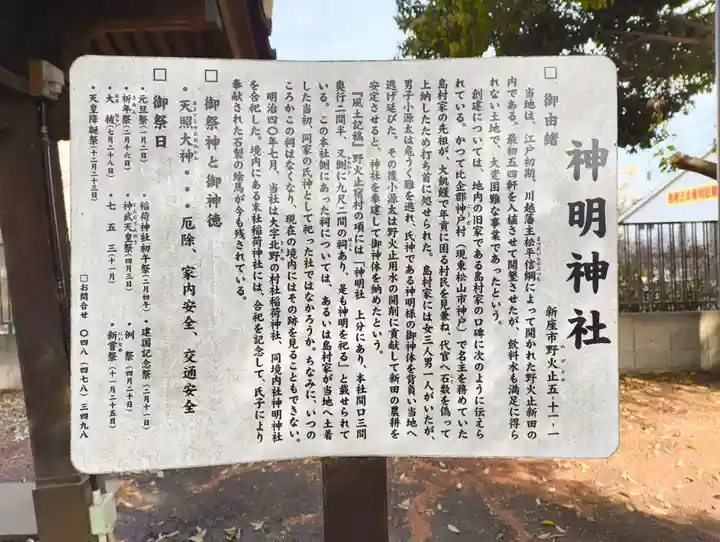 神明神社
新座市野火止五‐十一‐一
のびとめ
□ 御由緒
当地は、江戸初期、川越藩主松平信綱によって開かれた野火止新田の
まつだいらのぶつな
内である。最初五四軒を入植させて開墾させたが、飲料水も満足に得ら
れない土地で、大変困難な事業であったという。
創建については、地内の旧家である島村家の口碑に次のように伝えら
れている。かつて比企郡神戸村（現東松山市神戸）で名主を務めていた
島村家の先祖が、大飢饉で年貢に困る村民を見兼ね、代官へ石数を偽って
上納したため打ち首に処せられた。島村家には女三人男一人がいたが、
男子小源太は危うく難を逃れ、氏神である神明様の御神体を背負い当地へ
逃げ延びた。その後小源太は野火止用水の開削に貢献して新田の農耕を
安定させると、神社を奉建して御神体を納めたという。
『風土記稿』野火止宿村の項には「神明社 上分にあり、本社間口三間
奥行二間半、又側に九尺二間の祠あり、是も神明を祀る」と載せられて
いる。この本社側にあった祠については、あるいは島村家が当地へ土着
した当初、同家の氏神として祀った社ではなかろうか。ちなみに、いつの
ころかこの祠はなくなり、現在の境内にはその跡を見ることもできない。
明治四〇年七月、当社は大字北野の村社稲荷神社、同境内社神明神社
を合祀した。境内にある末社稲荷神社には、合祀を記念して、氏子により
奉献された石製の絵馬が今も残されている。
□ 御祭神と御神徳
・天照大神・・・厄除、家内安全、交通安全
□ 御祭日
・元旦祭（一月一日）　・稲荷神社初午祭（二月初午）　・建国記念祭（二月十一日）
・祈年祭（二月十六日）　・神武天皇祭（四月三日）　・例　祭（四月二十日）
・大　祓（七月二十八日）　・七 五 三（十一月）　・新嘗祭（十一月二十五日）
・天皇降誕祭（十二月二十三日）
□お問合せ 〇四八（四七八）三四九八